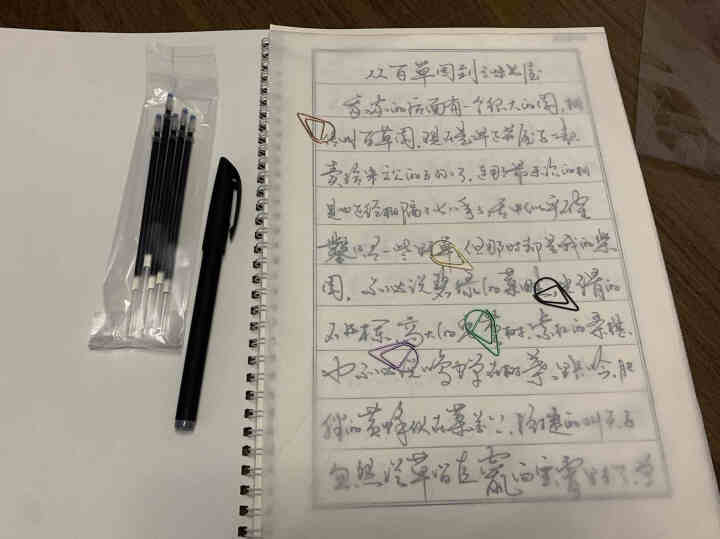 从百草园到三味书屋
我家的后面有一个很大的园,相
传叫百草园。现在是早已并屋子一起
卖给朱文公的子孙了,连那最末次的相
见也已经相隔了七八年,其中似乎确
凿只有一些野草,但那时却是我的乐
园。不必说碧绿的菜畦,光滑的
石井栏,高大的皂荚树,紫红的桑椹,
也不必说鸣蝉在树叶里长吟,肥
胖的黄蜂伏在菜花上,轻捷的叫天子
忽然从草间直窜向云霄里去了。单